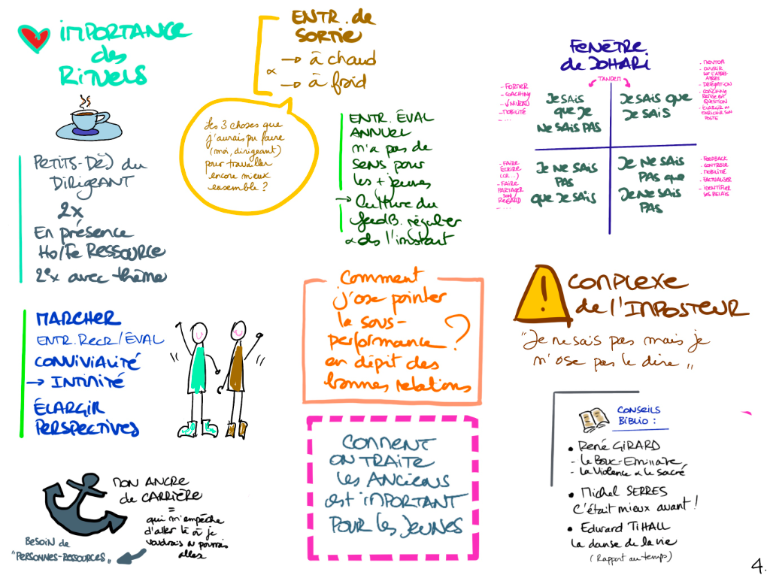 IMPORTANCE
des
RITUELS
PETITS-DÈJ du
DIRIGEANT
2x
En présence
Ho/Fe RESSOURCE
2e x avec thème
ENTR. de
SORTIE
→ à chaud
∝
→ à froid
Les 3 choses que
j'aurais pu faire
(moi, dirigeant)
pour travailler
encore mieux
ensemble ?
ENTR. ÉVAL
ANNUEL
n'a pas de
SENS pour
les + jeunes
→ Culture du
feedB. régulier
∝ ds l'instant
FENÊTRE
de JOHARI
TANDEM
- FORMER
- COACHING
- MOBILITÉ
JE SAIS
que JE
NE SAIS PAS
JE SAIS QUE
JE SAIS
- MENTOR
- FAIRE
- FAIRE
PARTAGER
REGARD
JE NE SAIS
PAS
QUE JE SAIS
JE NE SAIS
PAS QUE
JE NE SAIS
PAS
- FEEDBACK
- MOBILITÉ
- FACTUALISER
- IDENTIFIER
MARCHER
ENTR. RECR / ÉVAL
CONVIVIALITÉ
→ INTIMITÉ
ÉLARGIR
PERSPECTIVES
Comment
j'ose pointer
la sous-
performance ?
en dépit des
bonnes relations
!
COMPLEXE
de l'IMPOSTEUR
"Je ne sais pas mais je
n'ose pas le dire"
MON ANCRE
de CARRIÈRE
=
qui m'empêche
d'aller là où je
voudrais ∝ pourrais
aller
BESOIN de
"PERSONNES-RESSOURCES"
COMMENT
ON TRAITE
les ANCIENS
est IMPORTANT
POUR les JEUNES
CONSEILS
BIBLIO :
• René GIRARD
- Le Bouc-Emissaire
- La Violence ∝ le sacré
• Michel SERRES
C'était mieux avant !
• Edward T HALL
La danse de la vie
(Rapport au temps)
4.